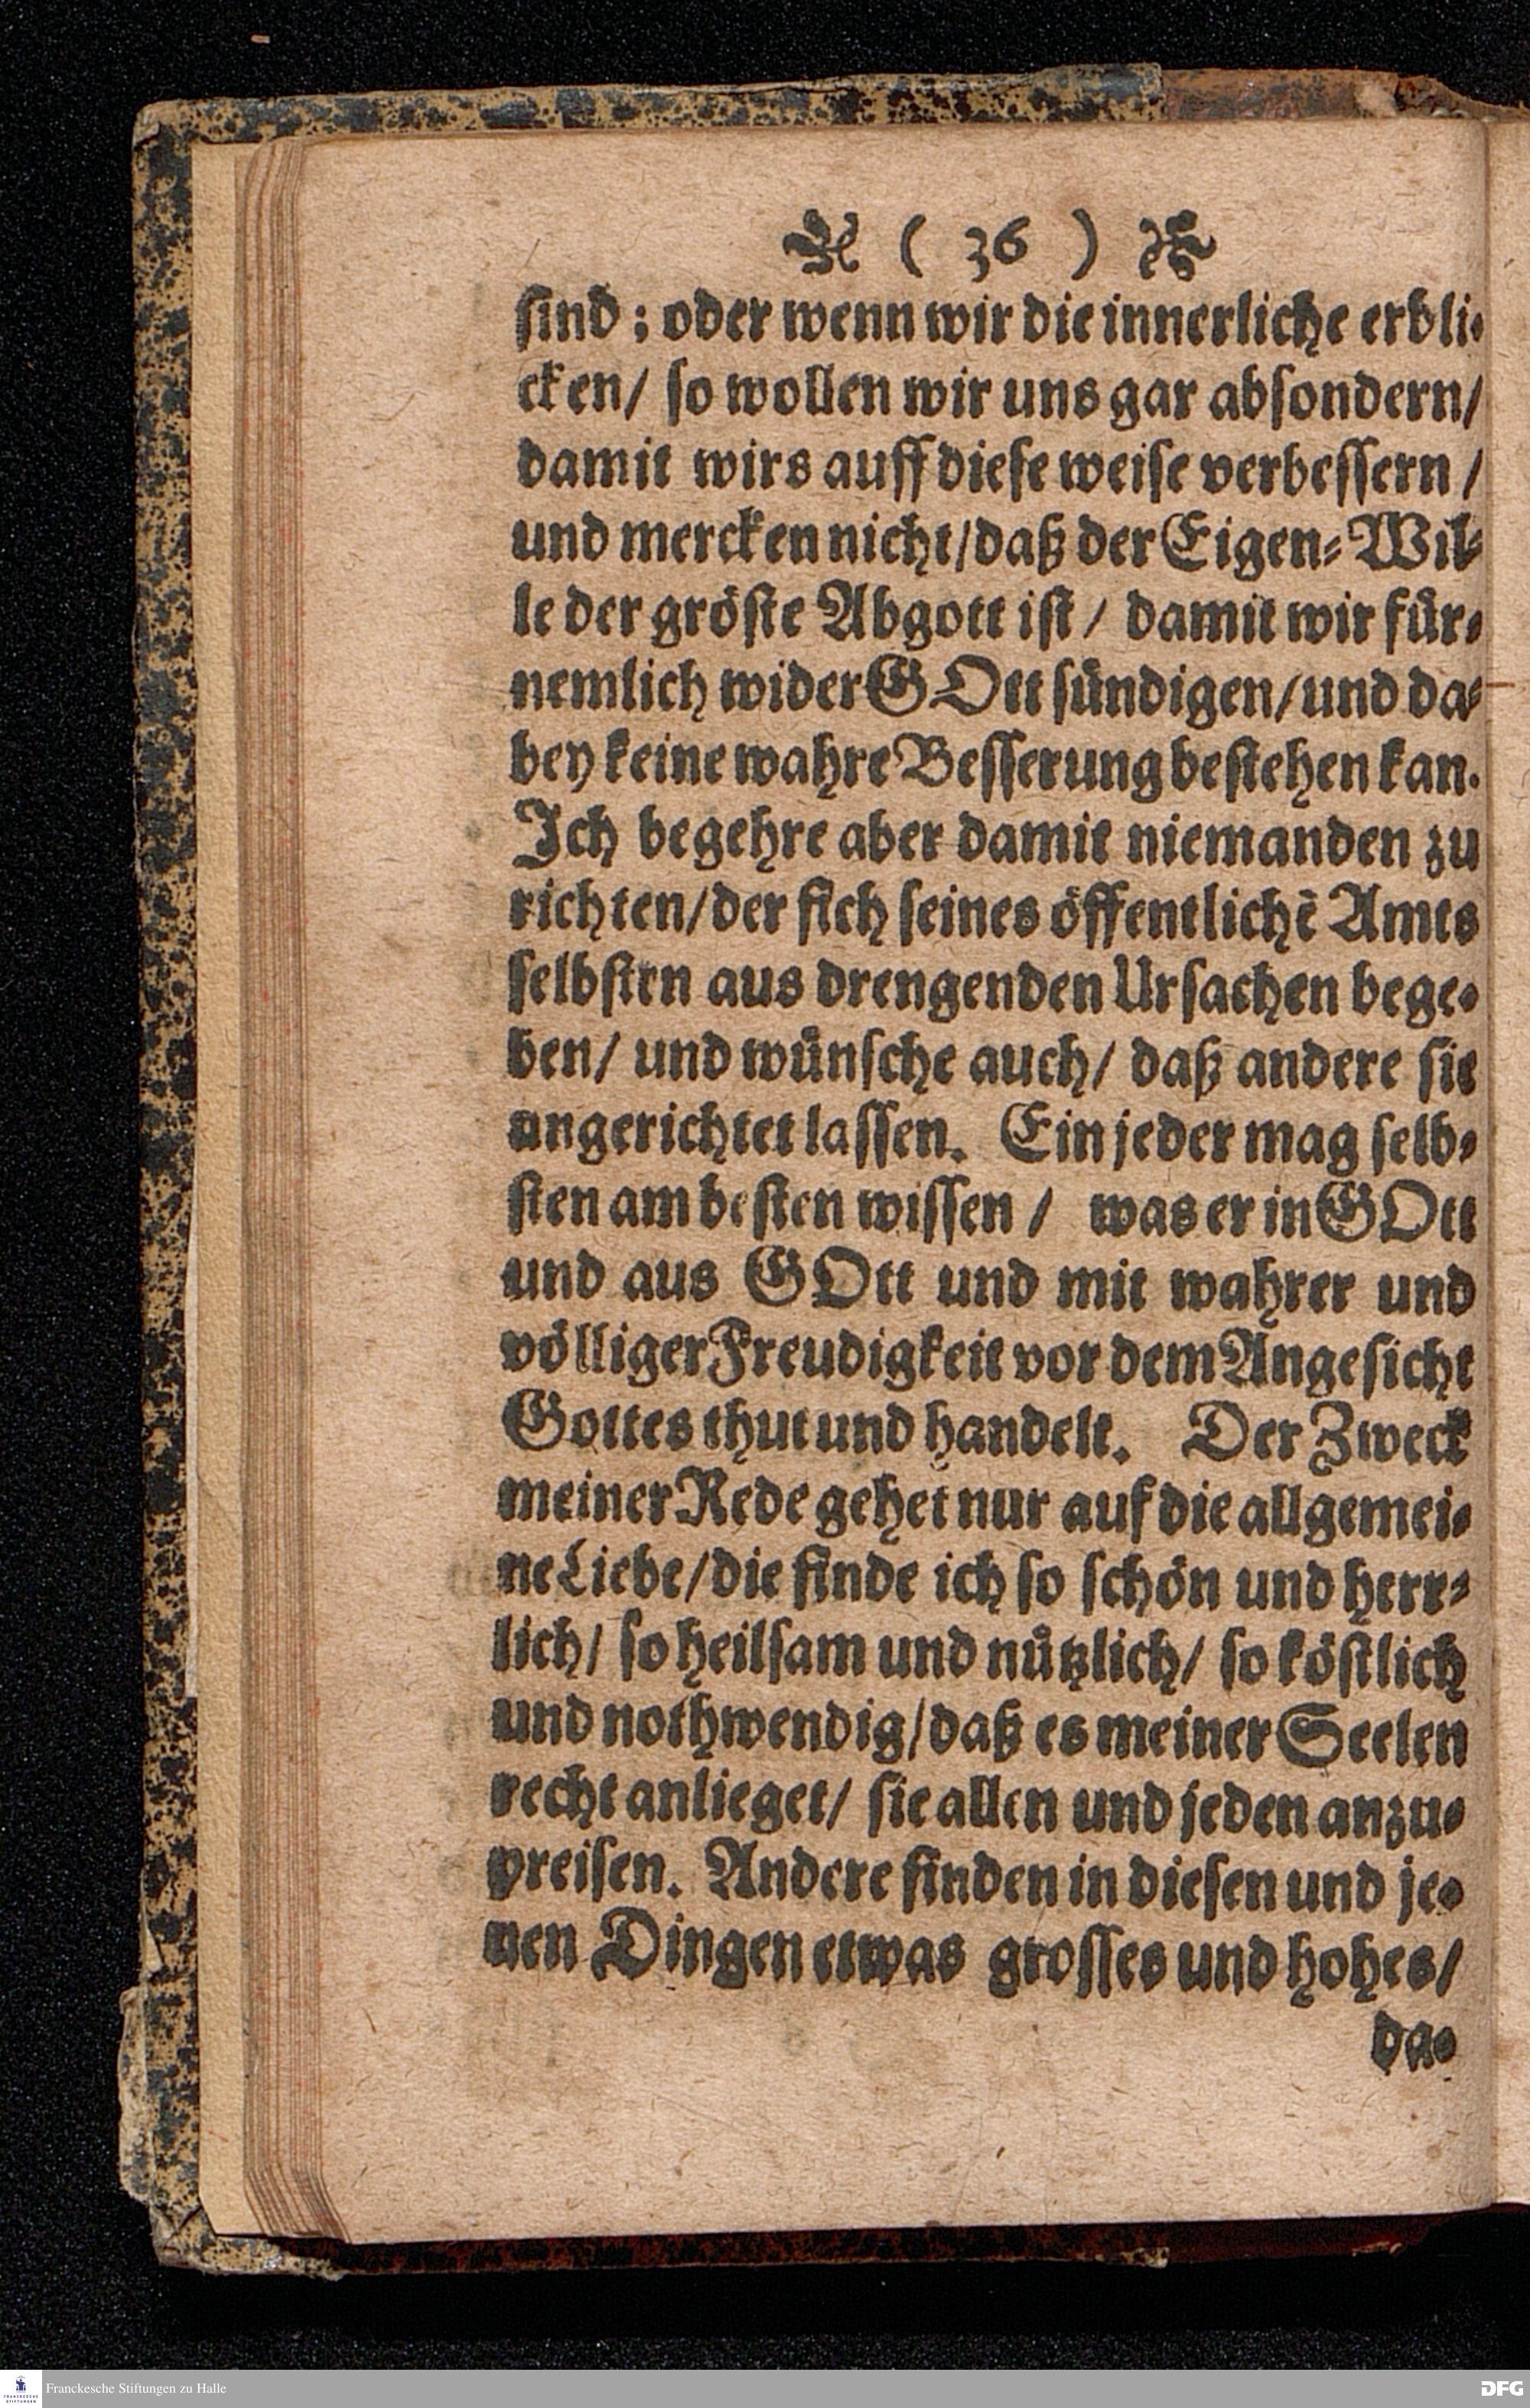 ( 36 )
sind; oder wenn wir die innerliche erbli-
cken/ so wollen wir uns gar absondern/
damit wirs auff diese weise verbessern/
und mercken nicht/daß der Eigen-Wil-
le der gröste Abgott ist/ damit wir für-
nemlich wider GOtt sündigen/und da-
bey keine wahre Besserung bestehen kan.
Ich begehre aber damit niemanden zu
richten/der sich seines öffentlichẽ Amts
selbsten aus drengenden Ursachen bege-
ben/ und wünsche auch/ daß andere sie
ungerichtet lassen. Ein jeder mag selb-
sten am besten wissen/ was er in GOtt
und aus GOtt und mit wahrer und
völliger Freudigkeit vor dem Angesicht
Gottes thut und handelt. Der Zweck
meiner Rede gehet nur auf die allgemei-
ne Liebe/die finde ich so schön und herr-
lich/ so heilsam und nützlich/ so köstlich
und nothwendig/daß es meiner Seelen
recht anlieget/ sie allen und jeden anzu-
preisen. Andere finden in diesen und je-
nen Dingen etwas grosses und hohes/
da-
Franckesche Stiftungen zu Halle
DFG